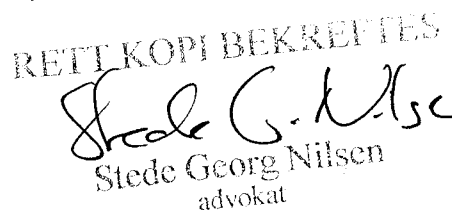 RETT KOPI BEKREFTES
Stede G. Nilse
Stede Georg Nilsen
advokat